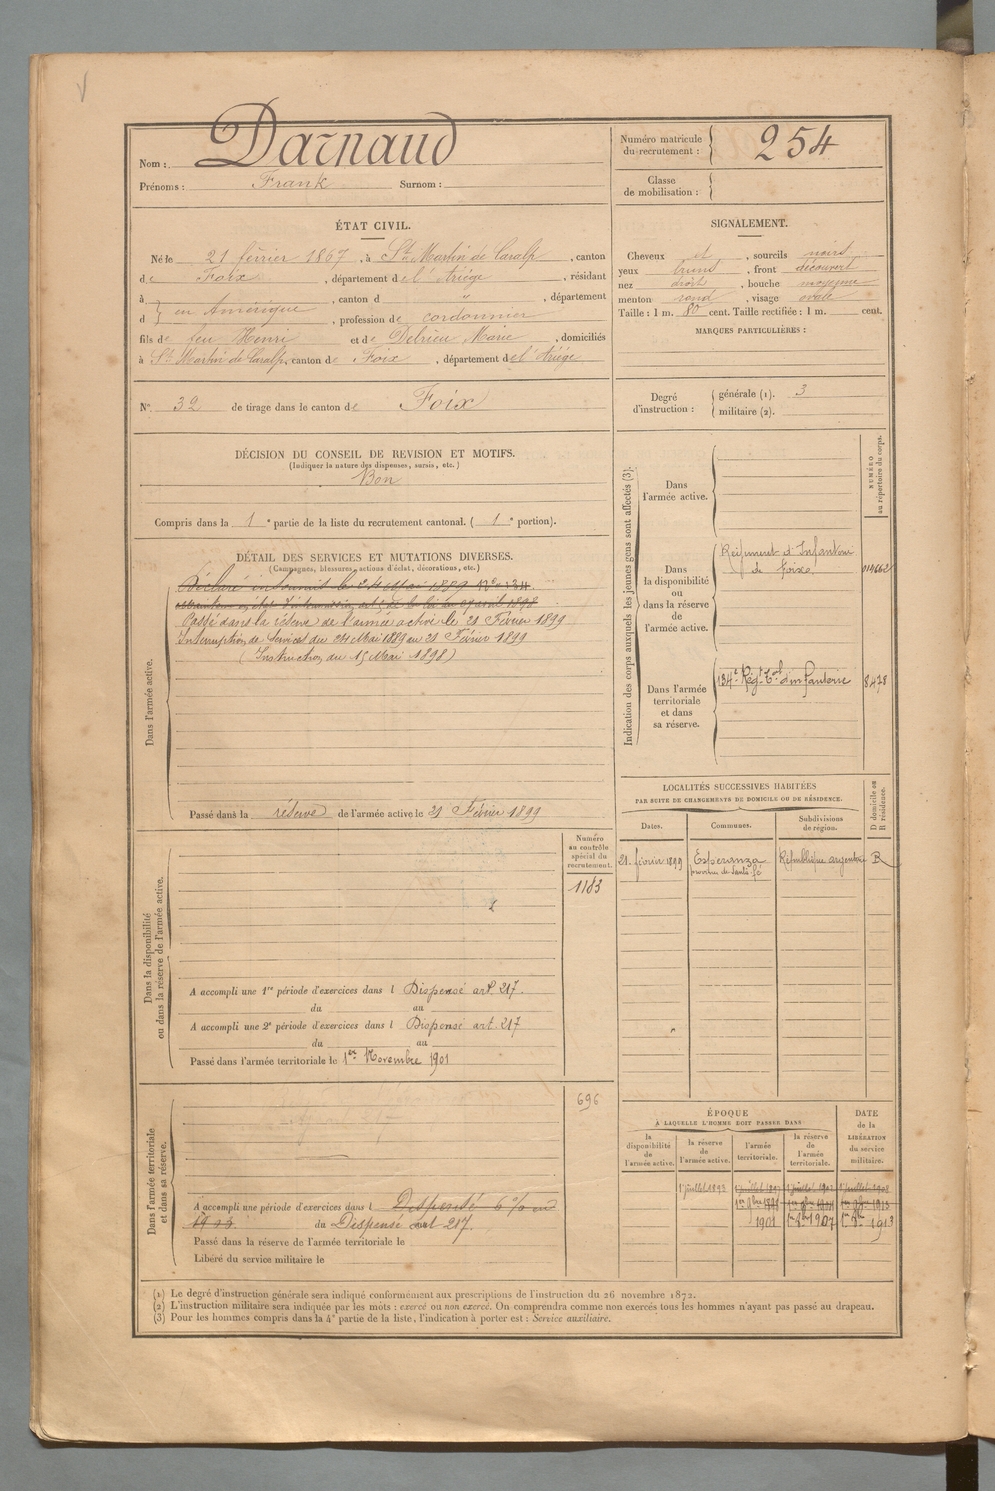 Nom : Darnaud
Prénoms : Frank Surnom :
Numéro matricule
du recrutement : 254
Classe
de mobilisation :
ÉTAT CIVIL.
Né le 21 février 1867, à St Martin de Caralp, canton
de Foix, département de l'Ariége, résidant
à
d en Amérique, canton d " , département
, profession de cordonnier
fils de feu Henri et de Delrieu Marie, domiciliés
à St Martin de Caralp, canton de Foix, département de l'Ariége
SIGNALEMENT.
Cheveux et, sourcils noirs
yeux bruns, front découvert
nez droit, bouche moyenne
menton rond, visage ovale
Taille : 1 m. 80 cent. Taille rectifiée : 1 m. cent.
MARQUES PARTICULIÈRES :
N° 32 de tirage dans le canton de Foix
Degré
d'instruction :
générale (1). 3
militaire (2).
DÉCISION DU CONSEIL DE REVISION ET MOTIFS.
(Indiquer la nature des dispenses, sursis, etc.)
Bon
Compris dans la 1e partie de la liste du recrutement cantonal. ( 1e portion).
DÉTAIL DES SERVICES ET MUTATIONS DIVERSES.
(Campagnes, blessures, actions d'éclat, décorations, etc.)
Dans l'armée active.
Déclaré insoumis le 24 Mai 1889 N° 134
27 avril 1898
Passé dans la réserve de l'armée active le 21 Février 1899
Interruption de services du 24 Mai 1889 au 21 Février 1899
(Instruction du 15 Mai 1898)
Passé dans la réserve de l'armée active le 21 Février 1899
Indication des corps auxquels les jeunes gens sont affectés (3).
NUMÉRO
au répertoire du corps.
Dans
l'armée active.
Dans
la disponibilité
ou
dans la réserve
de
l'armée active.
Régiment d'Infanterie
de Foix
Dans l'armée
territoriale
et dans
sa réserve.
134e Régt Tal d'infanterie 8478
LOCALITÉS SUCCESSIVES HABITÉES
PAR SUITE DE CHANGEMENTS DE DOMICILE OU DE RÉSIDENCE.
Dates. Communes. Subdivisions
de région. D domicile ou
R résidence.
21 février 1899 Esperanza République argentine R
province de Santa fé
Dans la disponibilité
ou dans la réserve de l'armée active.
Numéro
au contrôle
spécial du
recrutement.
1183
A accompli une 1re période d'exercices dans l Dispensé art. 217.
du au
A accompli une 2e période d'exercices dans l Dispensé art. 217
du au
Passé dans l'armée territoriale le 1er Novembre 1901
Dans l'armée territoriale
et dans sa réserve.
696
A accompli une période d'exercices dans l Dispensé
du Dispensé art 217.
Passé dans la réserve de l'armée territoriale le
Libéré du service militaire le
ÉPOQUE
À LAQUELLE L'HOMME DOIT PASSER DANS
DATE
de la
LIBÉRATION
du service
militaire.
la
disponibilité
de
l'armée active.
la réserve
de
l'armée active.
l'armée
territoriale.
la réserve
de
l'armée
territoriale.
1 juillet 1893 1 juillet 1897 1 juillet 1902 1 juillet 1908
1901 1er 9bre 1907 1er 9bre 1913
(1) Le degré d'instruction générale sera indiqué conformément aux prescriptions de l'instruction du 26 novembre 1872.
(2) L'instruction militaire sera indiquée par les mots : exercé ou non exercé. On comprendra comme non exercés tous les hommes n'ayant pas passé au drapeau.
(3) Pour les hommes compris dans la 4e partie de la liste, l'indication à porter est : Service auxiliaire.